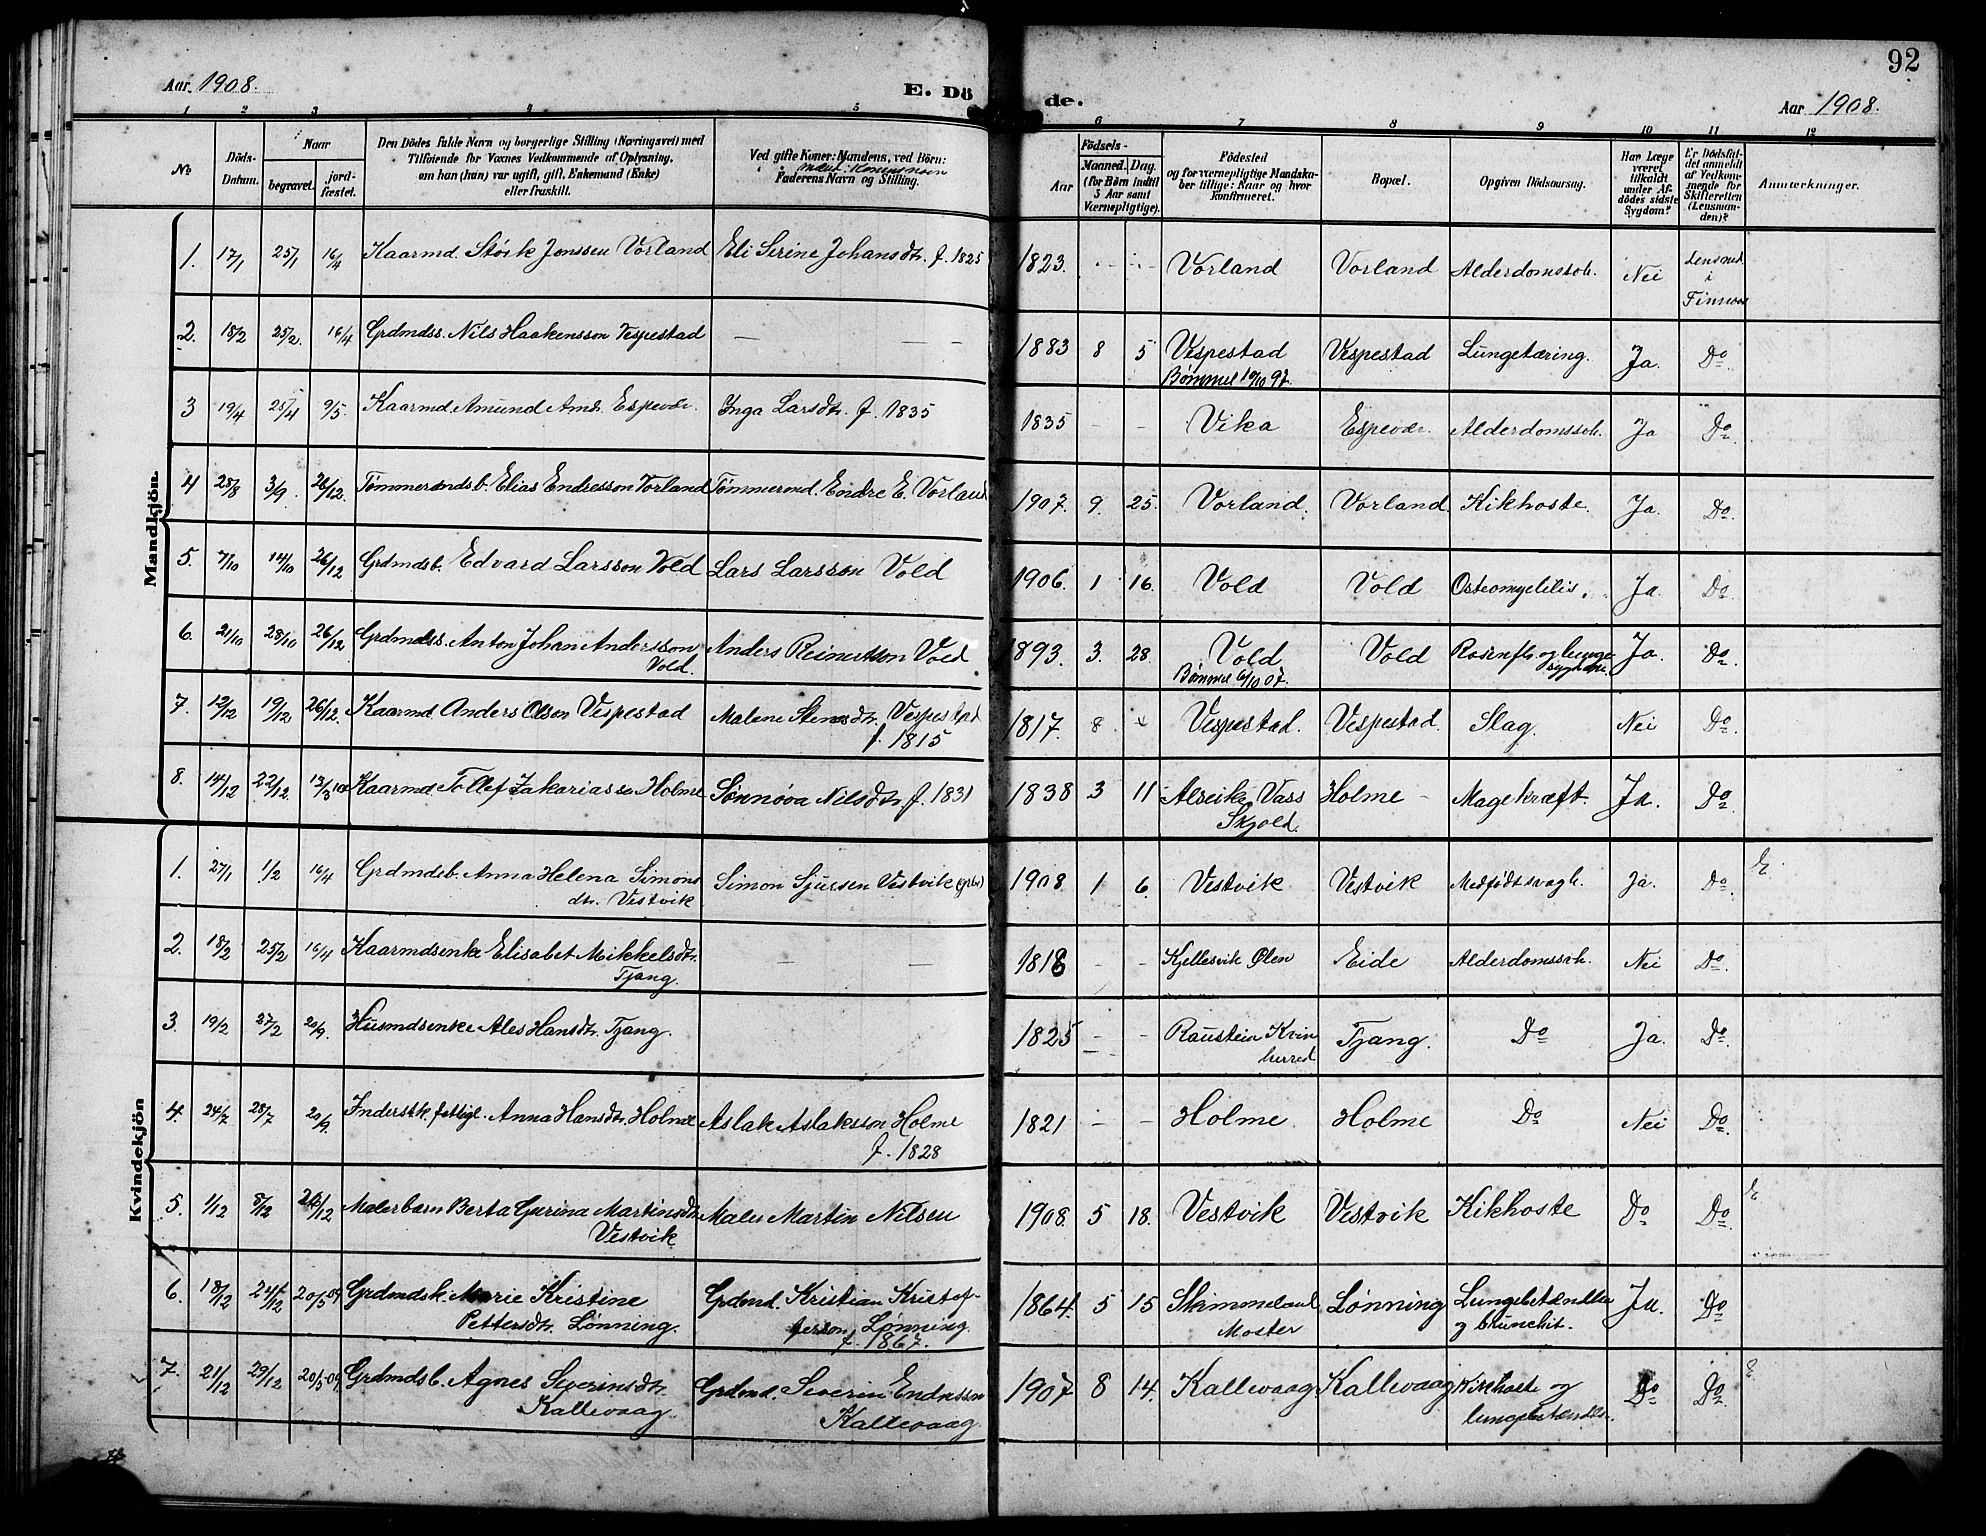 92
Aar 1908.
E. Döde.
Aar 1908.
1 2 3 4 5 6 7 8 9 10 11 12
No
Döds-Datum.
Naar
begravet.
jordfæstet.
Den Dödes fulde Navn og borgerlige Stilling (Næringsvei) med
Tilføiende for Voxnes Vedkommende af Oplysning,
om han (hun) var ugift, gift, Enkemand (Enke)
eller fraskilt.
Ved gifte Koner: Mandens, ved Börn:
Faderens Navn og Stilling.
Födsels-
Aar
Maaned. Dag.
(for Börn indtil
5 Aar samt
Værnepligtige).
Födested
og for værnepligtige Mandskaber tillige: Naar og hvor
konfirmeret.
Bopæl.
Opgiven Dödsaarsag.
Har Læge
været
tilkaldt
under Afdödes sidste
Sygdom?
Er Dödsfaldet anmeldt
af Vedkommende for
Skifteretten
(Lensmanden)?
Anmærkninger.
Mandkjön.
1. 17/1 25/1 16/4 Kaarmd. Störk Jonssen Vorland Eli Serine Johansdtr. f. 1825 1823. - - Vorland Vorland Alderdomssv. Nei
2. 18/2 25/2. 16/4 Grdmdss. Nils Haakensson Vespestad — — 1883 8 5 Vespestad Vespestad Lungetæring. Ja. Do
Bømmel 10/10 97.
3 19/4 25/4 9/5. Kaarmd. Amund Ams. Espevær. Inga Larsdtr. f. 1835 1835 - - Vika Espevær. Alderdomssv. Ja Do
4 28/8 3/9. 26/12. Tømmermdsb. Elias Endresson Vorland Tømmermd. Endre E. Vorland 1907. 9. 25. Vorland. Vorland Kikhoste. Ja. Do.
5. 7/10 14/10 26/12 Grdmdsb. Edvard Larsson Vold Lars Larsson Vold 1906. 1 16. Vold Vold Osteomyelitis. Ja Do
6. 21/10 28/10 26/12 Grdmdss. Anton Johan Andersson Anders Reinertson Vold 1893. 3. 28. Vold Vold Ja. Do.
Vold.
Bømmel 6/10 07.
7. 12/12 19/12 26/12. Kaarmd Anders Olsen Vespestad Malene Stensdtr. Vespestad 1817. 8 Vespestad. Vespestad. Slag. Nei Do.
f. 1815
8. 14/12 22/12. Kaarmd Tollef Zakariassen Holme Sønnøva Nilsdtr f. 1831 1838 3 11 Alseike Vass Holme - Magekræft. Ja. Do
Skjold.
Kvindekjön
1. 27/1 1/2 16/4 Grdmdsb. Anna Helena Simons Simon Sjursen Vestvik 1908. 1 6. Vestvik Vestvik Medfødt svagh. Ja. Do.
dtr. Vestvik
2. 18/2 25/2 16/4 Kaarmdsenke Elisabet Mikkelsdtr. — — 1818 - - Kjellesvik Ølen Eide Alderdomssv. Nei Do.
Tjang.
3. 19/2 27/2 20/9. Husmdsenke Ales Hansdtr. Tjang. 1825 - - Raustein Kvin Tjang. Do Ja. Do.
herred
4. 24/7 28/7 20/9. Inderstk. fattigl. Anna Hansdtr. Holme Aslak Aslaksson Holme 1821 - - Holme. Holme Do Nei Do
f. 1828
5. 1/12 8/12 26/12 Malerbarn Berta Gurina Martinsdtr Maler Martin Nilsen 1908. 5 18. Vestvik Vestvik Kikhoste Do Do.
Vestvik
6. 18/12 24/12 20/5 09 Grdmdsk. Marie Kristine Grdmd. Kristian Kristof- 1864. 5 15 Lønning Lungebetændelse Ja. Do
Pettersdtr. Lønning. fersson Lønning. Moster og brunchit.
f. 1867.
7. 21/12 29/12 20/5 09 Grdmdsb. Agnes Severinsdtr. Grdmd. Severin Endresson 1907 8 14. Kallevaag Kallevaag Kikhoste og Do Do
Kallevaag. Kallevaag. lungebetændelse.